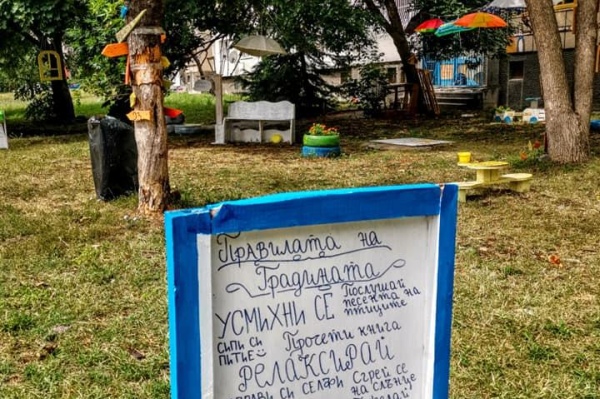 Правилата на
Градината
УСМИХНИ СЕ
Послушай
песента на
птиците
СИПИ СИ
ПИТИЕ
Прочети книга
РЕЛАКСИРАЙ
СИ СЕЛФИ
Сгрей се
на слънце